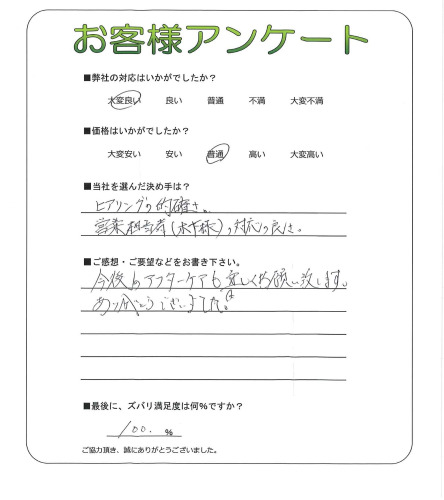 お客様アンケート
■弊社の対応はいかがでしたか？
大変良い 良い 普通 不満 大変不満
■価格はいかがでしたか？
大変安い 安い 普通 高い 大変高い
■当社を選んだ決め手は？
ヒアリングの的確さ。
営業担当者(木下様)の対応の良さ。
■ご感想・ご要望などをお書き下さい。
今後のアフターケアも宜しくお願い致します。
ありがとうございました。
■最後に、ズバリ満足度は何%ですか？
100. %
ご協力頂き、誠にありがとうございました。